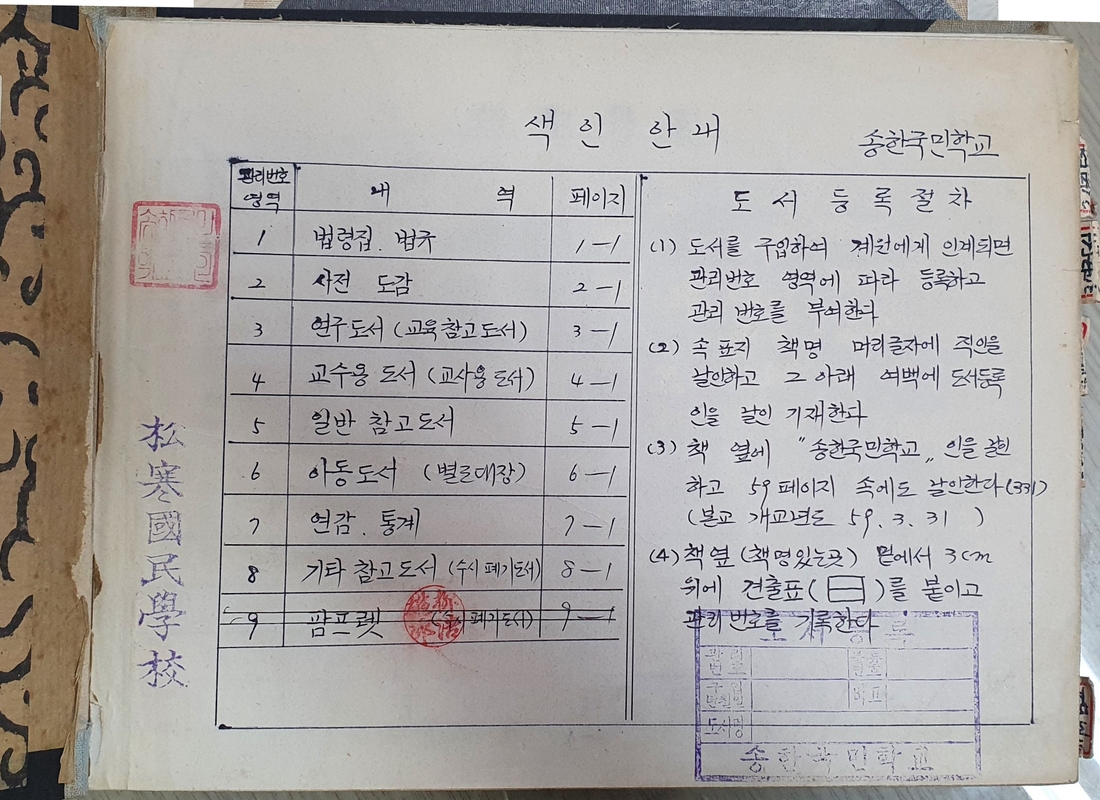 색인 안내
송한국민학교
관리번호
영역 내 역 페이지
1 법령집. 법규 1-1
2 사전 도감 2-1
3 연구도서 (교육참고도서) 3-1
4 교수용 도서 (교사용 도서) 4-1
5 일반 참고도서 5-1
6 아동도서 (별도대장) 6-1
7 연감. 통계 7-1
8 기타 참고도서 (수시 폐기도서) 8-1
9 팜프렛 (수시 폐기도서) 9-1
도서 등록절차
(1) 도서를 구입하여 계원에게 인계되면
관리번호 영역에 따라 등록하고
관리 번호를 부여한다
(2) 속 표지 책명 머리글자에 직인을
날인하고 그 아래 여백에 도서등록
인을 날인 기재한다
(3) 책 옆에 "송한국민학교" 인을 날인
하고 59페이지 속에도 날인한다(331)
(본교 개교년도 59. 3. 31 )
(4) 책옆 (책명있는곳) 밑에서 3cm
위에 견출표( )를 붙이고
관리 번호를 기록한다
도서등록
관리
번호
구입
도서명
송한국민학교
松寒國民學校